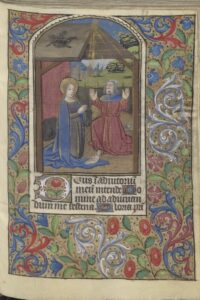 Deus in adiutoriu
meu intende Do
mine ad adiuuan
dum me festina Gloria pri